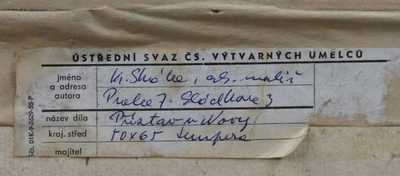 ÚSTŘEDNÍ SVAZ ČS. VÝTVARNÝCH UMĚLCŮ
jméno a adresa autora
K. , ak. malíř
Praha 7. 3
název díla
Přístav
kraj. střed
50x65 tempera
majitel